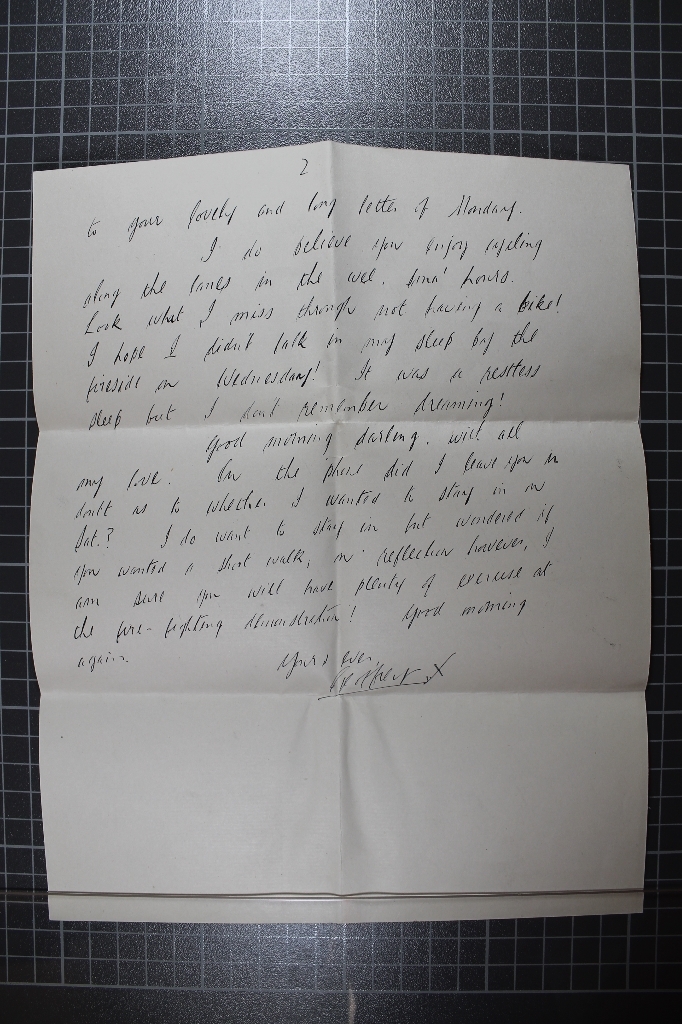 2
to your lovely and long letter of Monday.
I do believe you enjoy cycling
along the lanes in the wee, sma' hours.
Look what I miss through not having a bike!
I hope I didn't talk in my sleep by the
fireside on Wednesday! It was a restless
sleep but I don't remember dreaming!
Good morning darling, with all
my love. On the phone did I leave you in
doubt as to whether I wanted to stay in on
Sat.? I do want to stay in but wondered if
you wanted a short walk, on reflection however, I
am sure you will have plenty of exercise at
the fire-fighting demonstration! Good morning
again.
Yours ever,
X